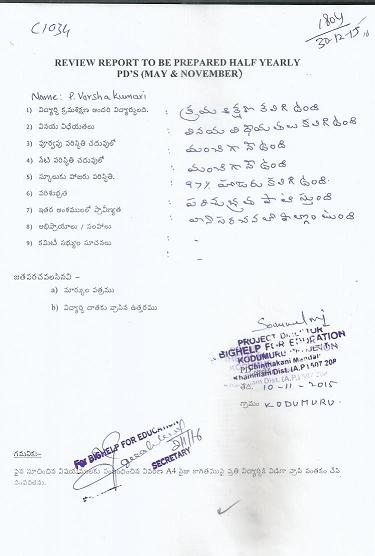 C1034
1804
30-12-15
REVIEW REPORT TO BE PREPARED HALF YEARLY
PD'S (MAY & NOVEMBER)
Name: P. Varsha Kumari
1) విద్యార్థి క్రమశిక్షణ అందరి విద్యార్థులది. : క్రమ శిక్షణ కలిగి ఉంది
2) వినయ విధేయతలు : వినయ విధేయతలు కలిగి ఉంది
3) పూర్వపు పరిస్థితి చదువులో : మంచిగానే ఉంది
4) నేటి పరిస్థితి చదువులో : మంచిగానే ఉంది
5) స్కూలుకు హాజరు పరిస్థితి. : 97% హాజరు కలిగి ఉంది.
6) పరిశుభ్రత : పరిశుభ్రత పాటిస్తుంది
7) ఇతర అంశములలో ప్రావీణ్యత :
8) అభిప్రాయాలు / సలహాలు : -
9) కమిటీ సభ్యుల సూచనలు -
జతపరచవలసినవి :-
a) మార్కుల పత్రము
b) విద్యార్థి దాతకు వ్రాసిన ఉత్తరము
PROJECT DIRECTOR
BIGHELP FOR EDUCATION
KODUMURU
Chinthakani Mandal
Khammam Dist. (A.P.) 507 208
తేది. 10-11-2015
గ్రామం: KODUMURU.
For BIGHELP FOR EDUCATION
గమనిక:-
పైన సూచించిన విషయములకు సంబంధించిన వివరణ A4 సైజు కాగితముపై ప్రతి విద్యార్థికి విడిగా వ్రాసి సంతకం చేసి
పంపవలెను.